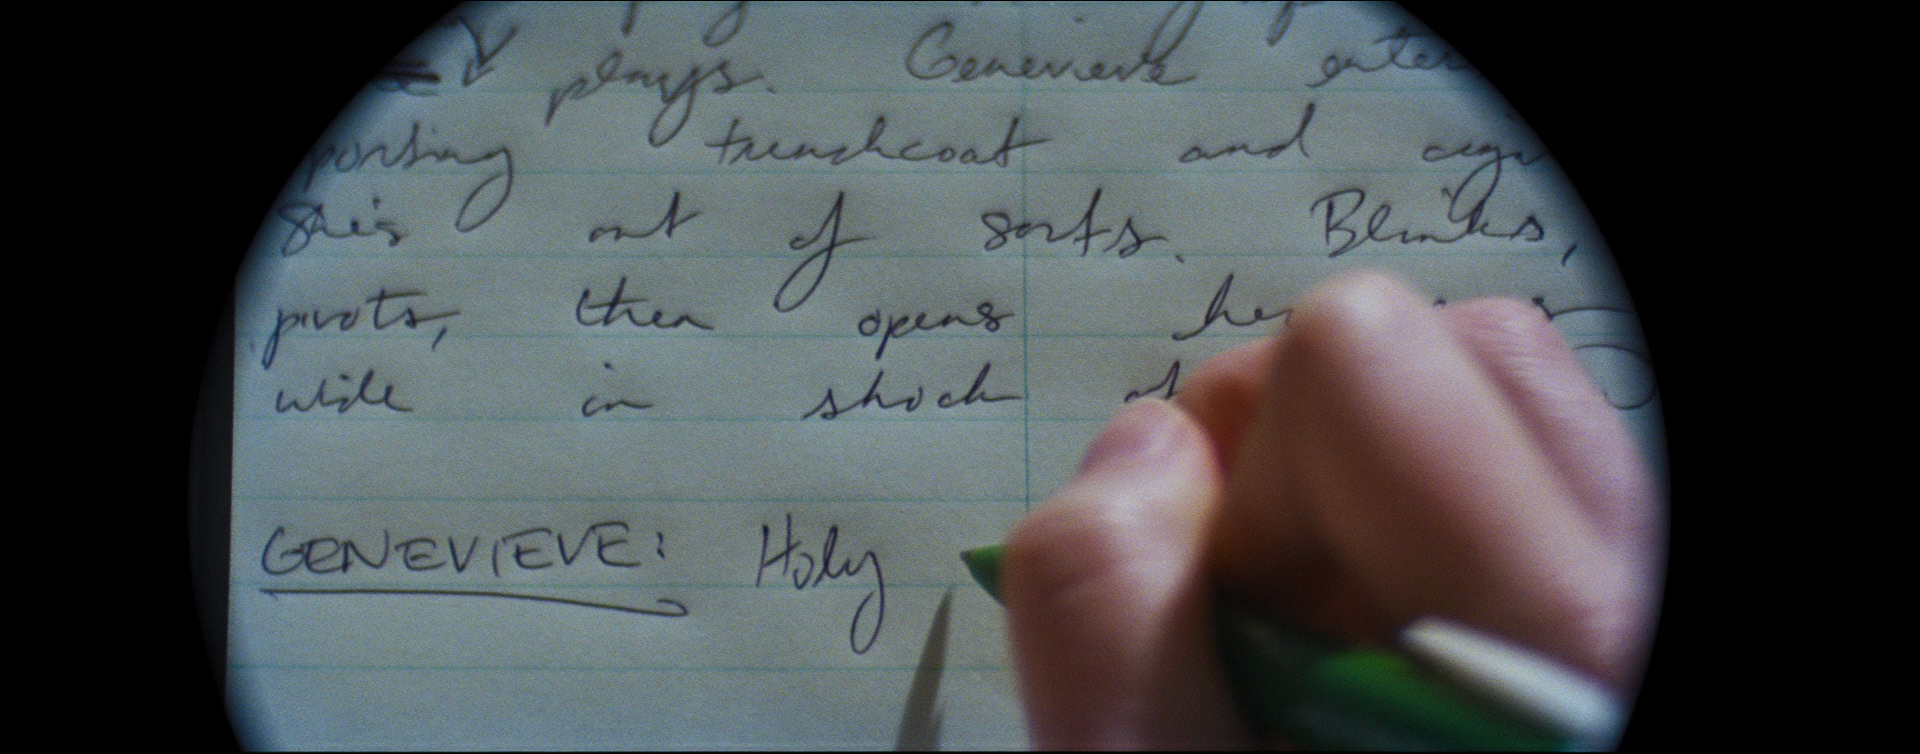 plays. Genevieve
trenchcoat and
She's out of sorts. Blinks,
pivots, then opens
wide in shock at
GENEVIEVE: Holy